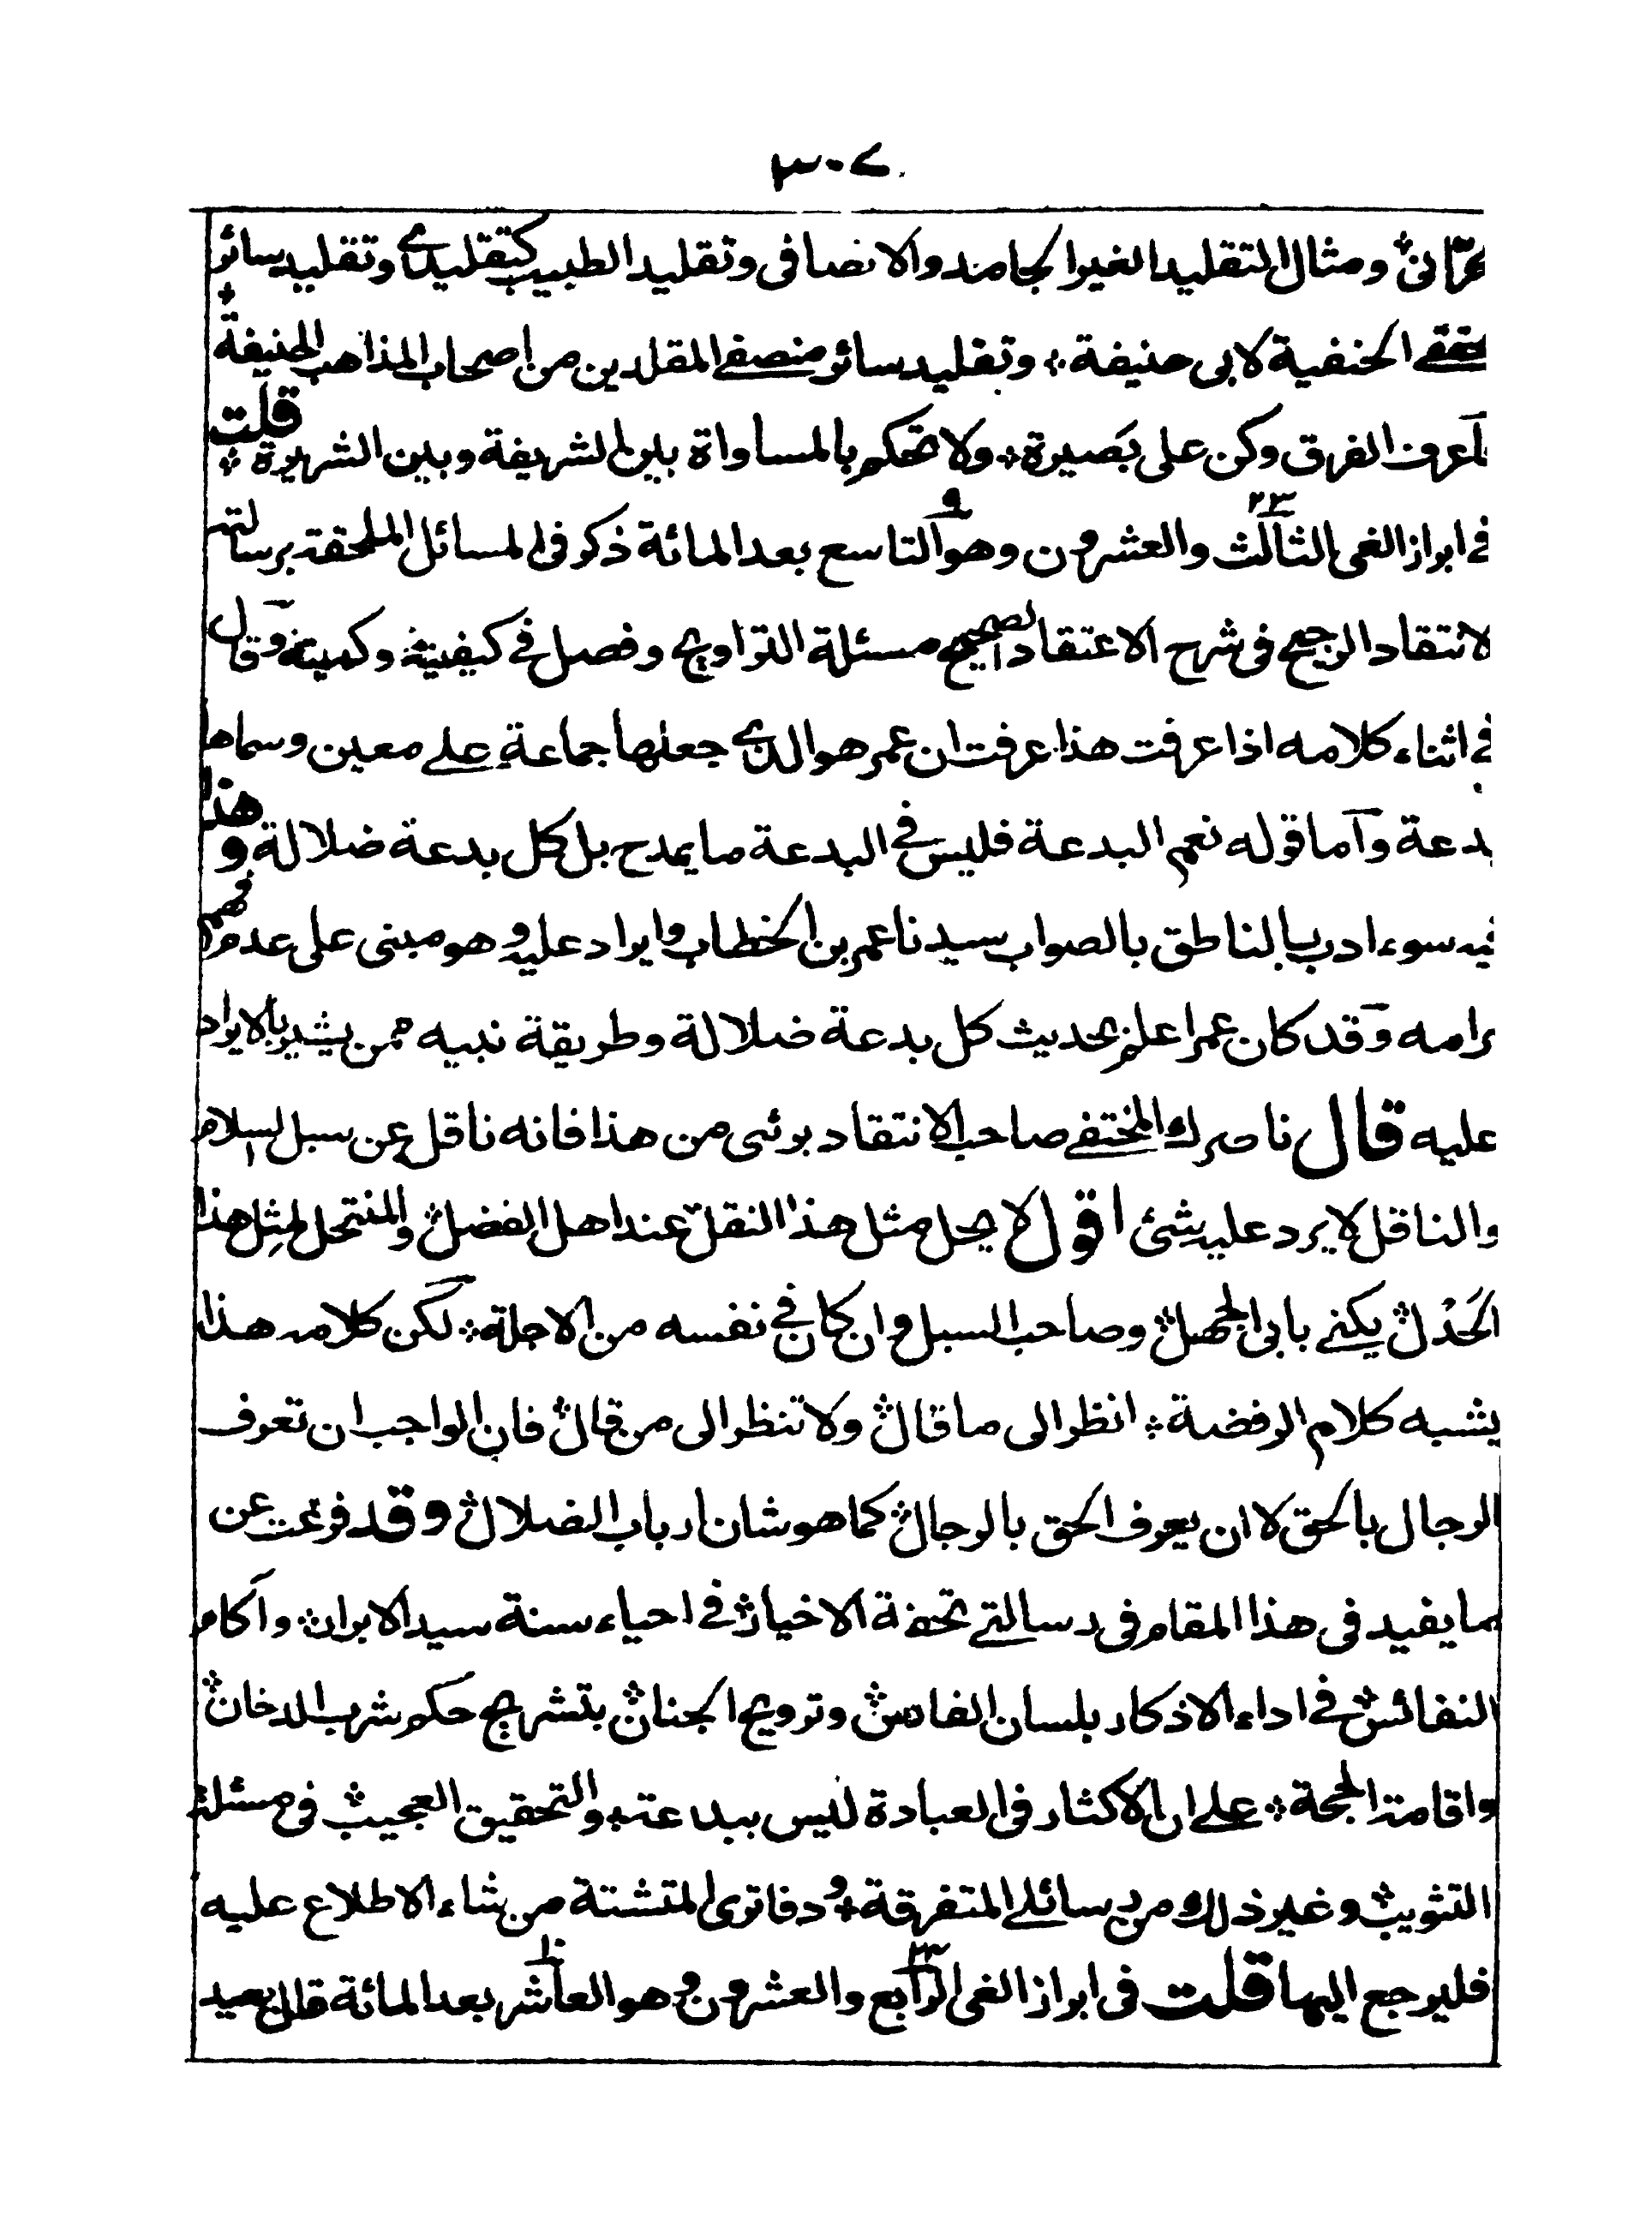 ٣٠٧
عرّانى ومثال التقليد الغير الجامد والانصافى وتقليد الطبيب كتقليدى وتقليد سائر
محققى الحنفية لابى حنيفة وتقليد سائر منصفى المقلدين من اصحاب المذاهب الحنيفة
فاعرف الفرق وكن على بصيرة ولا تحكم بالمساواة بين الشريفة وبين الشريرة قلت
فى ابراز الغى الثالث ٢٣ والعشرون وهو التاسع ٩ بعد المائة ذكر فى المسائل الملحقة برسالته
الانتقاد الرجيح فى شرح الاعتقاد الصحيح مسئلة التراويح وفصل فى كيفيته وكميته وقال
فى اثناء كلامه اذا عرفت هذا عرفت ان عمر هو الذى جعلها جماعة على معين وسماها
بدعة وآما قوله نعم البدعة فليس فى البدعة ما يمدح بل كل بدعة ضلالة وهذا
فيه سوء ادب بالناطق بالصواب سيدنا عمر بن الخطاب وايراد عليه وهو مبنى على عدم فهم
مرامه وقد كان عمر اعلم بحديث كل بدعة ضلالة وطريقة نبيه ممن يشير بالايراد
عليه قال ناصرك المختفى صاحب الانتقاد برئى من هذا فانه ناقل عن سبل السلام
والناقل لا يرد عليه شئ اقول لا يحل مثل هذا النقل عند اهل الفضل والمنتحل لمثل هذا
الخَدْل يكنى بابى الجهل وصاحب السبل وان كان فى نفسه من الاجلة لكن كلامه هذا
يشبه كلام الرفضة انظر الى ما قال ولا تنظر الى من قال فان الواجب ان تعرف
الرجال بالحق لا ان يعرف الحق بالرجال كما هو شان ارباب الضلال وقد فرغت عن
ما يفيد فى هذا المقام فى رسالتى تحفة الاخيار فى احياء سنة سيد الابرار وآكام
النفائس فى اداء الاذكار بلسان الفارس وترويح الجنان بتشريح حكم شرب الدخان
واقامة الحجة على ان الاكثار فى العبادة ليس ببدعة والتحقيق العجيب فى مسئلة
التثويب وغير ذلك من رسائلى المتفرقة ودفاترى المتشتة من شاء الاطلاع عليه
فليرجع اليها قلت فى ابراز الغى الرابع ٢٤ والعشرون وهو العاشر بعد المائة قال بعيد